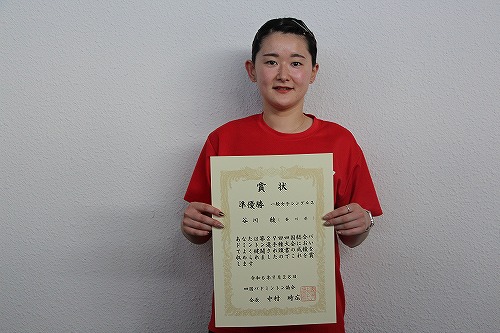 賞状
準優勝 一般女子シングルス
谷川 綾 (香川県)
あなたは第67回四国総合バ
ドミントン選手権大会におい
てよく健闘され頭書の成績を
収められましたのでこれを賞
します
令和6年9月28日
四国バドミントン協会
会長 中村 時広